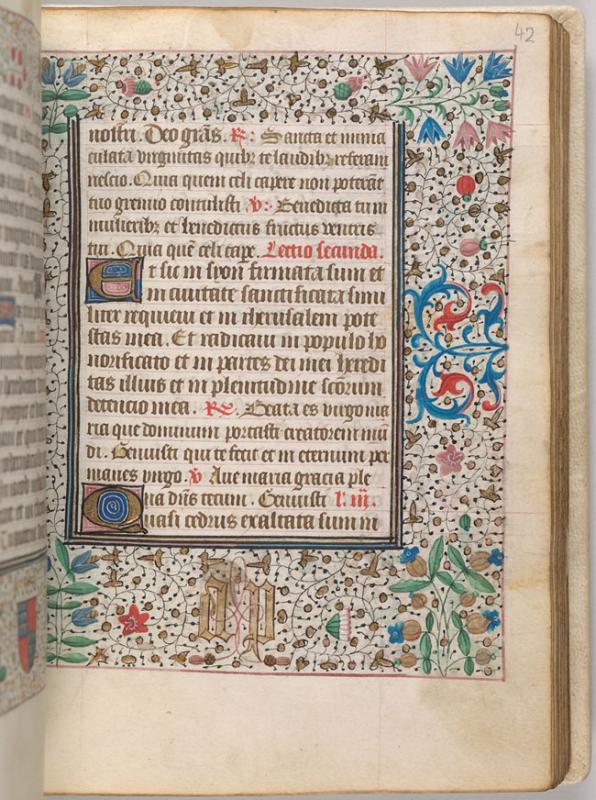 42
nostri. Deo grãs. R: Sancta et inma
culata virginitas quibz te laudibz referam
nescio. Quia quem celi capere non poterãt
tuo gremio contulisti. V: Benedicta tu in
mulieribz et benedictus fructus ventris
tui. Quia quē celi cape. Lectio secunda.
Et sic in syon firmata sum et
in ciuitate sanctificata simi
liter requieui et in iherusalem pote
stas mea. Et radicaui in populo ho
norificato et in partes dei mei heredi
tas illius et in plenitudine scōrum
detencio mea. R Beata es virgo ma
ria que dominum portasti creatorem mũ
di. Genuisti qui te fecit et in eternum per
manes virgo. V Aue maria gracia ple
na dñs tecum. Genuisti l. iii.
Quasi cedrus exaltata sum in